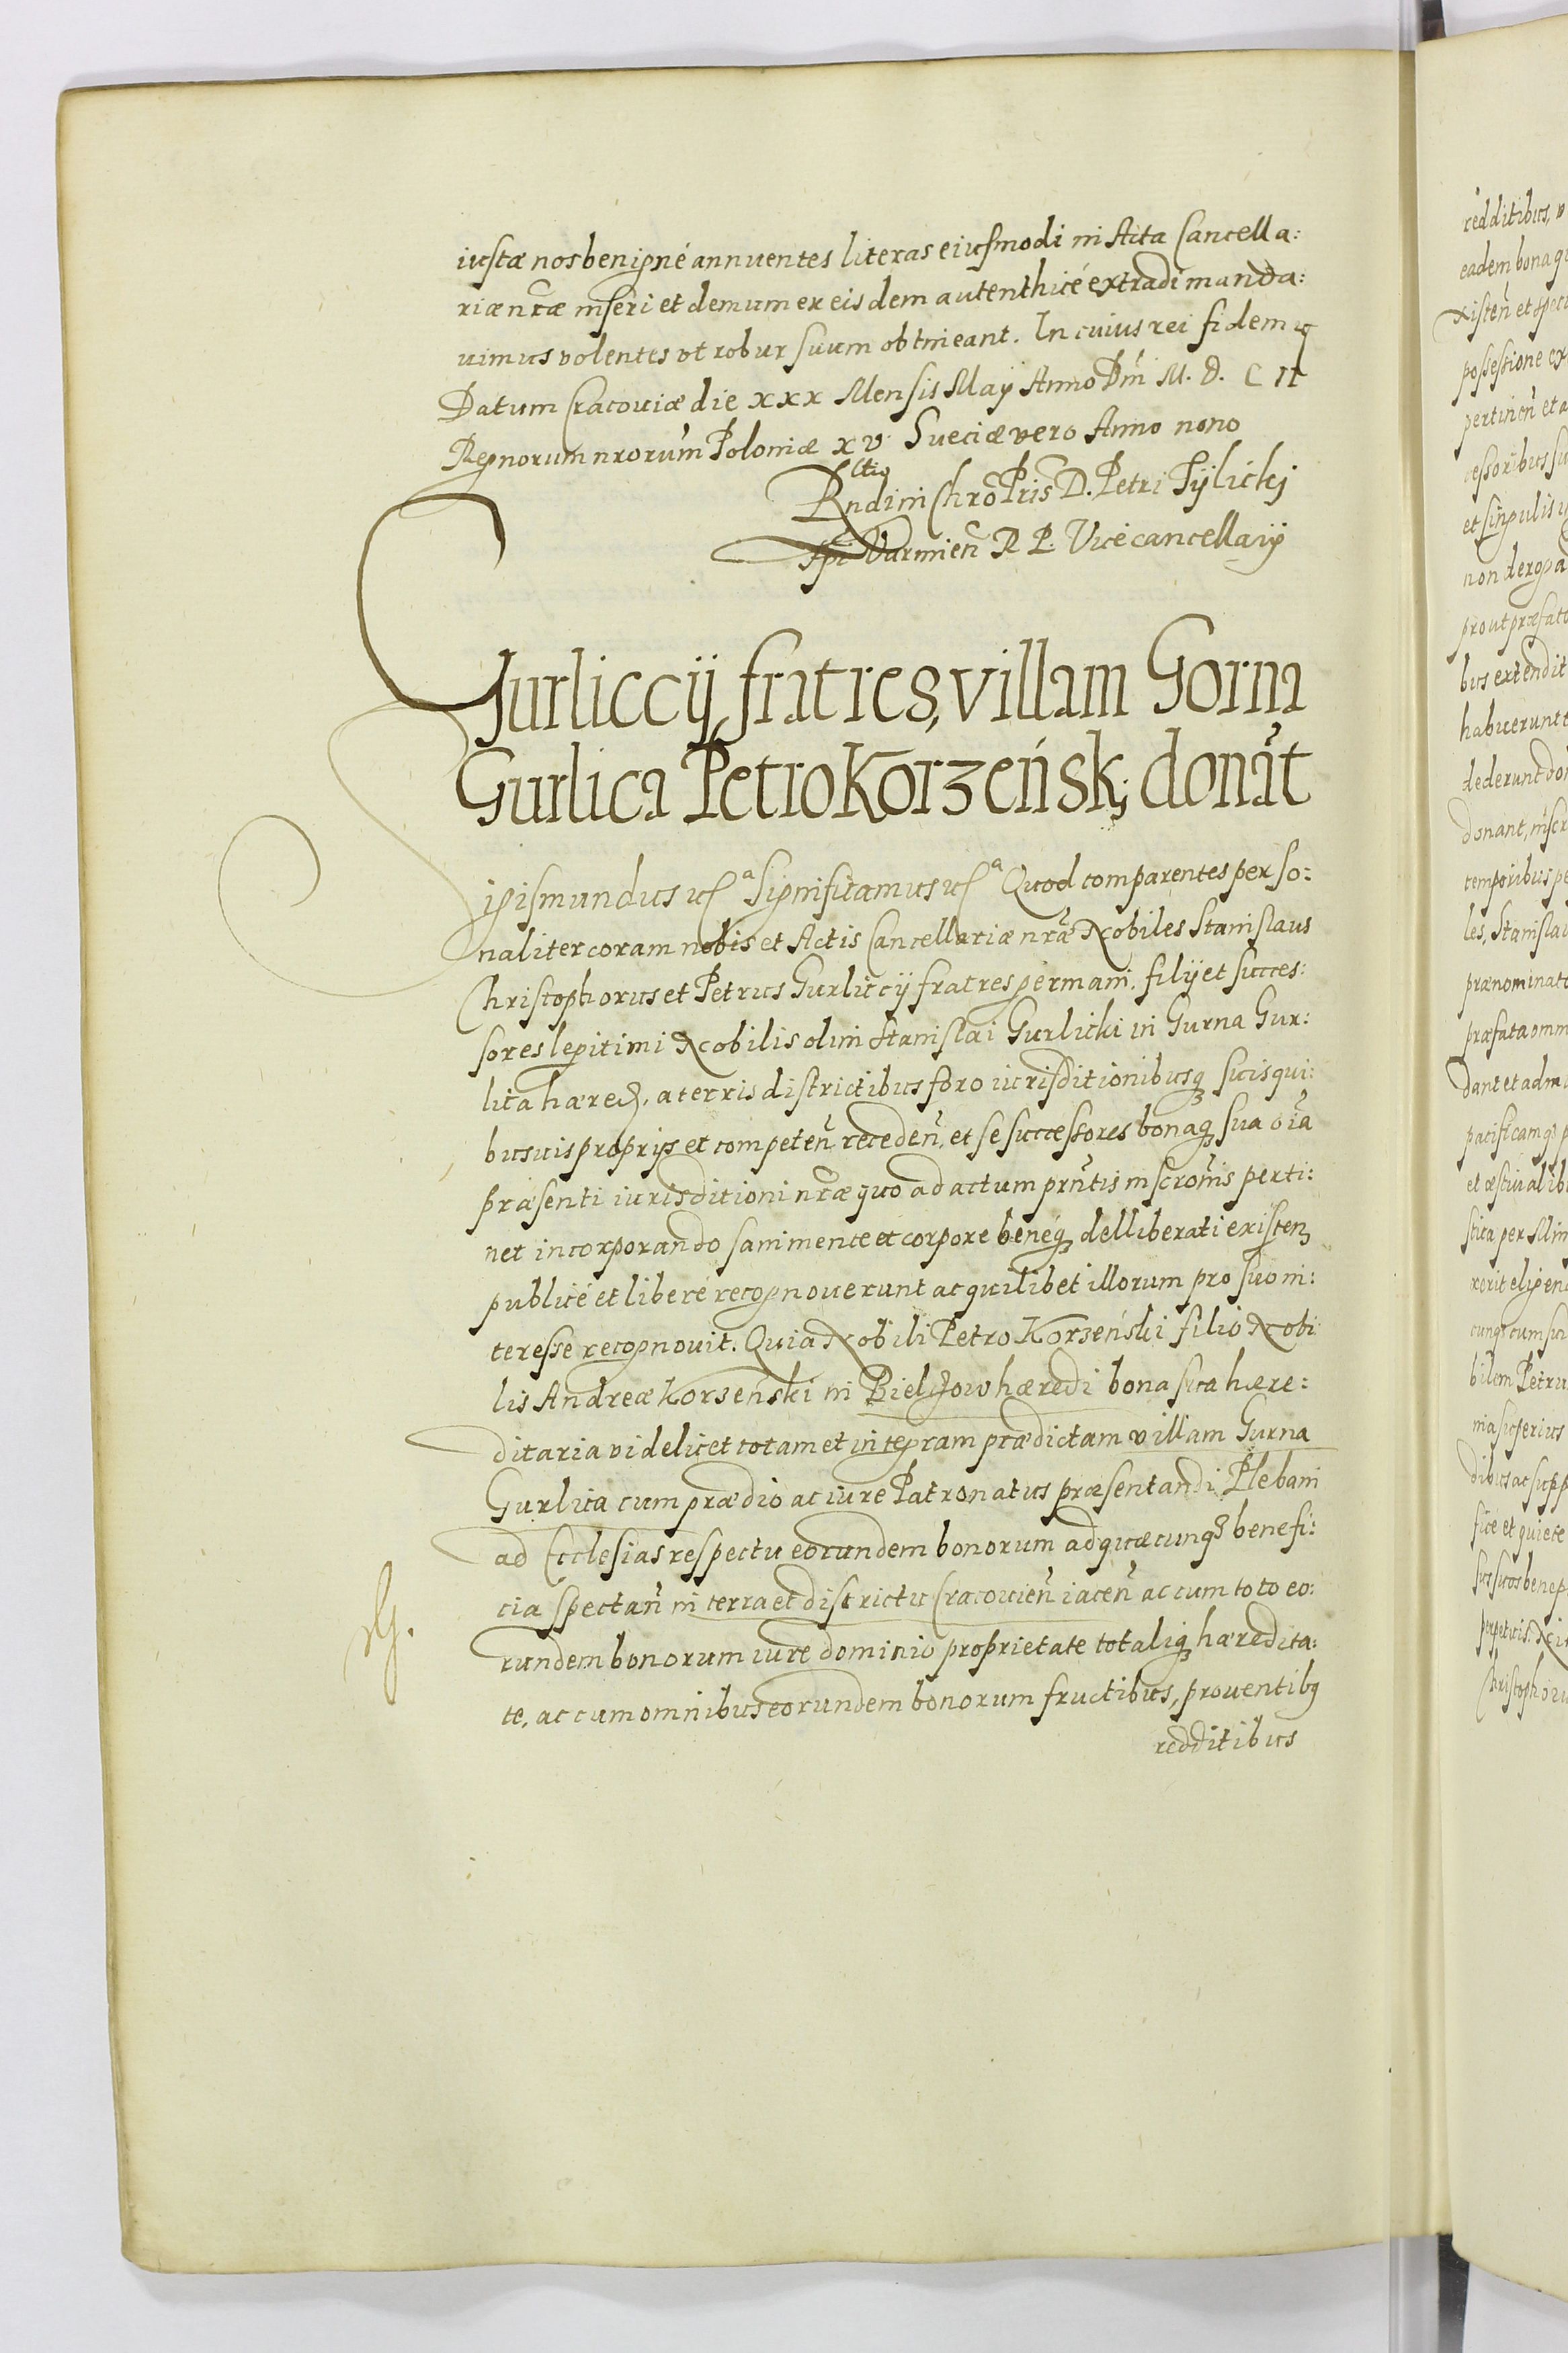 iustæ nos benigné annuentes literas eiusmodi in Acta Cancella:
riæ nr̃æ inseri et demum ex eisdem autenthicé extradi manda:
uimus volentes vt robur suum obtineant. In cuius rei fidem
Datum Cracouiæ die xxx Mensis Maij Anno Dm̃ M. D. C II
Regnorum nrorum̃ Poloniæ xv. Sueciæ vero Anno nono
Rltio
Rndi in Chrõ Pris̃ D. Petri Tÿlickj
Ep̃i Varmien̄ R P. Vicecancellarij
Gurliccij fratres, villam Gorna
Gurlica Petro Korzeńskj donãt
Sigismundus etca Significamus etca Quod comparentes perso:
naliter coram nobis et Actis Cancellariæ nrǣ Nobiles Stanislaus
Christophorus et Petrus Gurliccij fratres germani, filij et succes:
sores legitimi Nobilis olim Stanislai Gurlicki in Gurna Gur:
lica hæred, a terris districtibus foro iurisditionibusq suis qui:
busuis proprijs et competen̄ receden̄, et se successores bonaq sua oĩa
præsenti iurisditioni nr̃æ quo ad actum prñtis inscrõnis perti:
net incorporando sani mente et corpore benéq delliberati existen
publicé et liberé recognouerunt ac quilibet illorum pro suo in:
teresse recognouit. Quia Nobili Petro Korzeński filio Nobi
lis Andreæ Korzeński in Bielzow hæredi bona sua hære:
ditaria videlicet totam et integram prædictam villam Gurna
Gurlica cum prædio ac iure Patronatus præsentandi Plebani
ad Ecclesias respectu eorundem bonorum ad quæcunq benefi:
cia spectan̄ in terra et districtu Cracouien̄ iacen̄ ac cum toto eo:
rundem bonorum iure dominio proprietate totaliq hæredita:
te, ac cum omnibus eorundem bonorum fructibus, prouentibq
redditibus
redditibus, v
eadem bona q
xisten̄ et spec
possessione ex
pertinen̄ et a
cessoribus su
et singulis
non deroga
prout præfat
bus extendit
habuerunt
dederunt do
donant, inscr
temporibus pe
les, Stanisla
prænominat
præfata omn
dant et adm
pacificamq p
et æstiualib
stica per Min
xerit eligen
cunq cum su
bilem Petru
nia superius
dibus ac supp
ficé et quiete
suos bene p
perpetuis. Ni
Christophoru